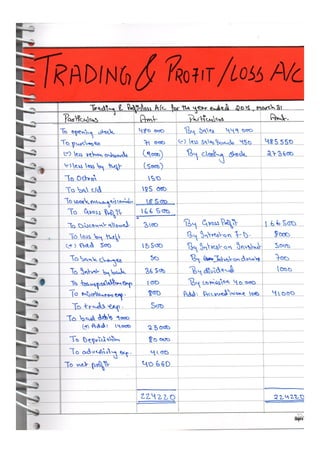 TRADING & PROFIT/LOSS A/C
Trading & Profit/loss A/c for the year ended 2018, march 31
Particulars Amt Particulars Amt.
To opening stock 480 000 By Sales 449 000
To purchase 71 000 (-) less Sales 450 485550
(-) less return outwards (9000) By closing stock 273600
(-) less loss by theft (5000)
To Octroi 150
To bal c/d 185 000
18500
To Gross Profit 166 500
To Discount allowed 3100 By Gross Profit 166 500
To loss by theft By Intrest on F.D. 8000
(+) Add 500 15500 By Intrest on 5000
To bank charges 50 By Intrest on 700
To Intrest by bank 36 500 By dividend 1000
To transportation exp 100 By comission 40 000
To miscellaneous exp. 800 Add: Accrued income 1000 41000
To trade exp. 500
To bad debts 9000
(+) Add: 14000 23000
To Depriciation 80 000
To advertising exp. 4100
To net profit 40 660
224220 224220